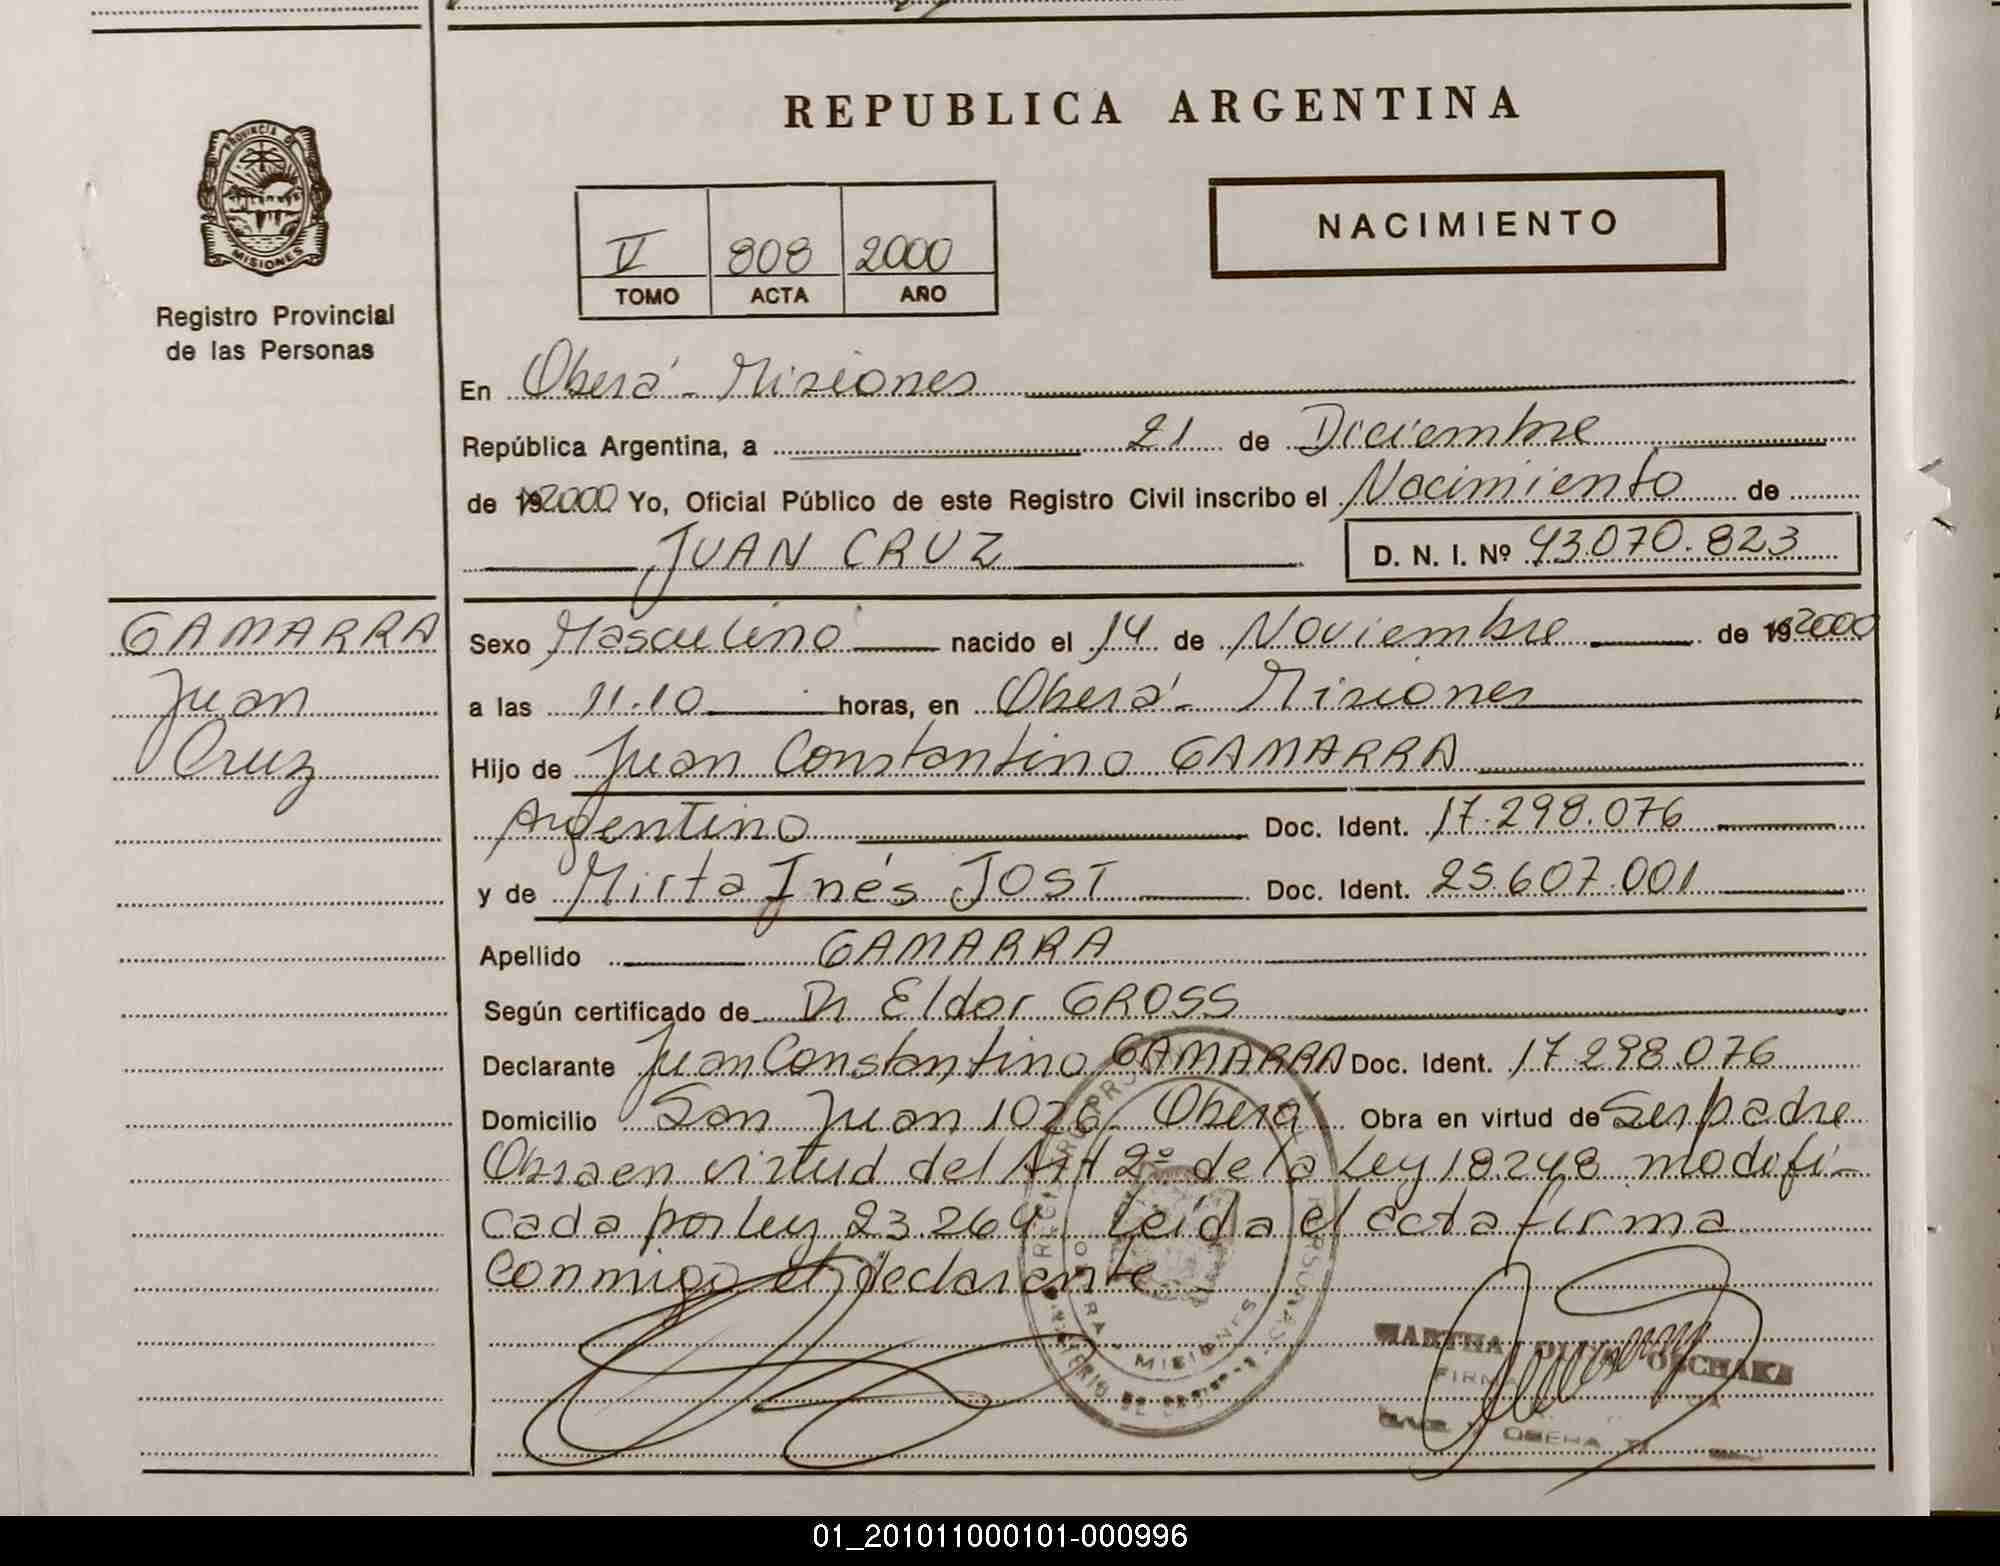 REPUBLICA ARGENTINA
PROVINCIA DE
MISIONES
Registro Provincial
de las Personas
V 808 2000
TOMO ACTA AÑO
NACIMIENTO
En Oberá - Misiones
República Argentina, a 21 de Diciembre
de 192000 Yo, Oficial Público de este Registro Civil inscribo el Nacimiento de
JUAN CRUZ
D. N. I. Nº 43.070.823
GAMARRA
Juan
Cruz
Sexo Masculino nacido el 14 de Noviembre de 192000
a las 11.10 horas, en Oberá - Misiones
Hijo de Juan Constantino GAMARRA
Argentino Doc. Ident. 17.298.076
y de Mirta Inés JOST Doc. Ident. 25.607.001
Apellido GAMARRA
Según certificado de Dr Eldor GROSS
Declarante Juan Constantino GAMARRA Doc. Ident. 17.298.076
Domicilio San Juan 1026 Oberá Obra en virtud de Ser padre
Obra en virtud del Art 2º de la Ley 18.248 modifi-
cada por ley 23.264 Leída el acta firma
Conmigo el declarante
MISIONES
MARTHA OSCHAKA
FIRMA
01_201011000101-000996